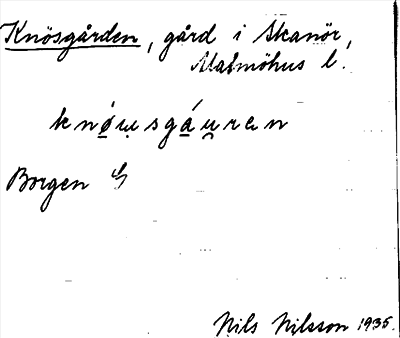 Knösgården, gård i Skanör,
Malmöhus l.
knǿu̯sgáu̯ren
Borgen
Nils Nilsson 1935.